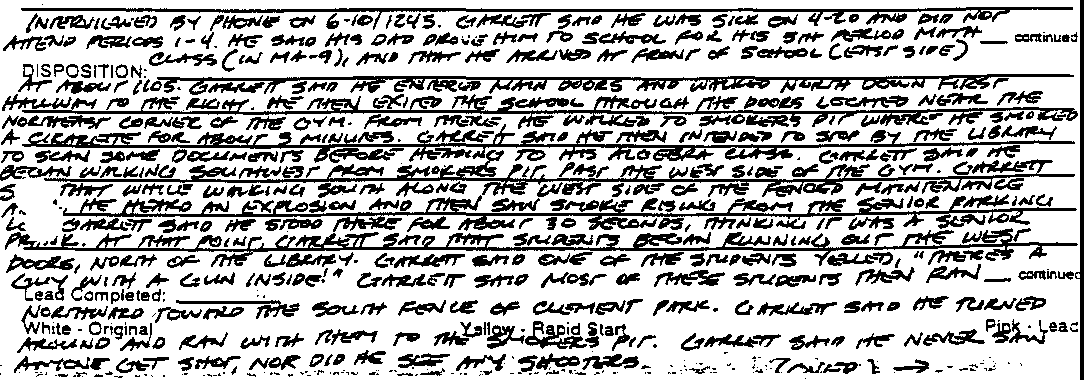 INTERVIEWED BY PHONE ON 6-10/1245. GARRETT SAID HE WAS SICK ON 4-20 AND DID NOT
ATTEND PERIODS 1-4. HE SAID HIS DAD DROVE HIM TO SCHOOL FOR HIS 5TH PERIOD MATH continued
CLASS (IN MA-9), AND THAT HE ARRIVED AT FRONT OF SCHOOL (EAST SIDE)
DISPOSITION:
AT ABOUT 1105. GARRETT SAID HE ENTERED MAIN DOORS AND WALKED NORTH DOWN FIRST
HALLWAY TO THE RIGHT. HE THEN EXITED THE SCHOOL THROUGH THE DOORS LOCATED NEAR THE
NORTHEAST CORNER OF THE GYM. FROM THERE, HE WALKED TO SMOKERS PIT WHERE HE SMOKED
A CIGARETTE FOR ABOUT 5 MINUTES. GARRETT SAID HE THEN INTENDED TO STOP BY THE LIBRARY
TO SCAN SOME DOCUMENTS BEFORE HEADING TO HIS ALGEBRA CLASS. GARRETT SAID HE
BEGAN WALKING SOUTHWEST FROM SMOKERS PIT, PAST THE WEST SIDE OF THE GYM. GARRETT
S THAT WHILE WALKING SOUTH ALONG THE WEST SIDE OF THE FENCED MAINTENANCE
A HE HEARD AN EXPLOSION AND THEN SAW SMOKE RISING FROM THE SENIOR PARKING
GARRETT SAID HE STOOD THERE FOR ABOUT 30 SECONDS, THINKING IT WAS A SENIOR
PRANK. AT THAT POINT, GARRETT SAID THAT STUDENTS BEGAN RUNNING OUT THE WEST
DOORS, NORTH OF THE LIBRARY. GARRETT SAID ONE OF THE STUDENTS YELLED, "THERE'S A
GUY WITH A GUN INSIDE!" GARRETT SAID MOST OF THESE STUDENTS THEN RAN continued
Lead Completed:
NORTHWARD TOWARD THE SOUTH FENCE OF CLEMENT PARK. GARRETT SAID HE TURNED
White - Original Yellow - Rapid Start Pink - Lead
AROUND AND RAN WITH THEM TO THE SMOKERS PIT. GARRETT SAID HE NEVER SAW
ANYONE GET SHOT, NOR DID HE SEE ANY SHOOTERS.